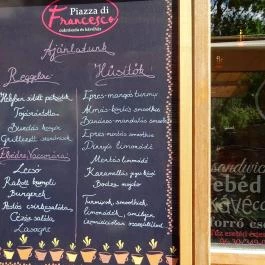 Piazza di
Francesco
cukrászda és kávéház
Ajánlatunk
Reggeli:
Helyben sült pékáruk
Tojásrántotta
Bundás kenyér
Grillezett szendvicsek
Ebédre, Vacsorára:
Lecsó
Rakott krumpli
Burgerek
Húsos csirkesaláta
Cézár saláta
Lasagne
Hűsítők:
Epres-mangós turmix
Almás-körtés smoothie
Banános-mandulás smoothie
Epres-mentás smoothie
Dinnyés limonádé
Mentás limonádé
Karamellás jegeskávé
Bodza nyaló
Turmixok, smoothiek,
limonádék, amelyen
szendvics
ebéd
kávéc
forró cso